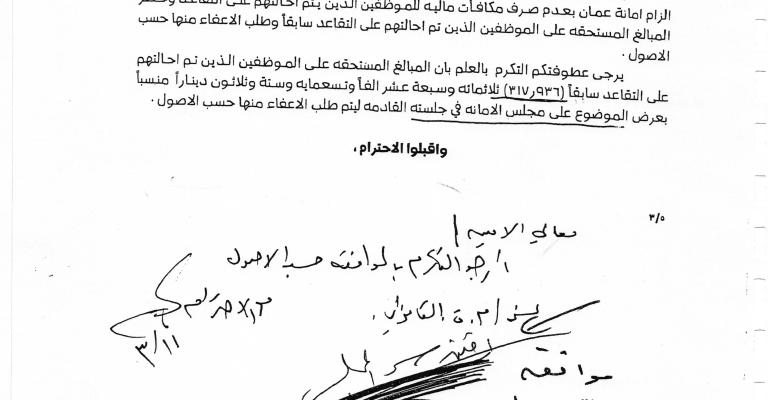 الزام امانة عمان بعدم صرف مكافآت مالية للموظفين الذين يتم احالتهم على التقاعد
المبالغ المستحقه على الموظفين الذين تم احالتهم على التقاعد سابقاً وطلب الاعفاء منها حسب
الاصول .
يرجى عطوفتكم التكرم بالعلم بان المبالغ المستحقه على الموظفين الذين تم احالتهم
على التقاعد سابقاً (٣١٧,٩٣٦) ثلاثمائه وسبعة عشر الفاً وتسعمايه وستة وثلاثون ديناراً منسباً
بعرض الموضوع على مجلس الامانه في جلسته القادمه ليتم طلب الاعفاء منها حسب الاصول .
واقبلوا الاحترام ،
٣/٥
معالي الامين
ارجو التكرم بالموافقة حسب الاصول
مع الاحترام
٣/١١
موافقه